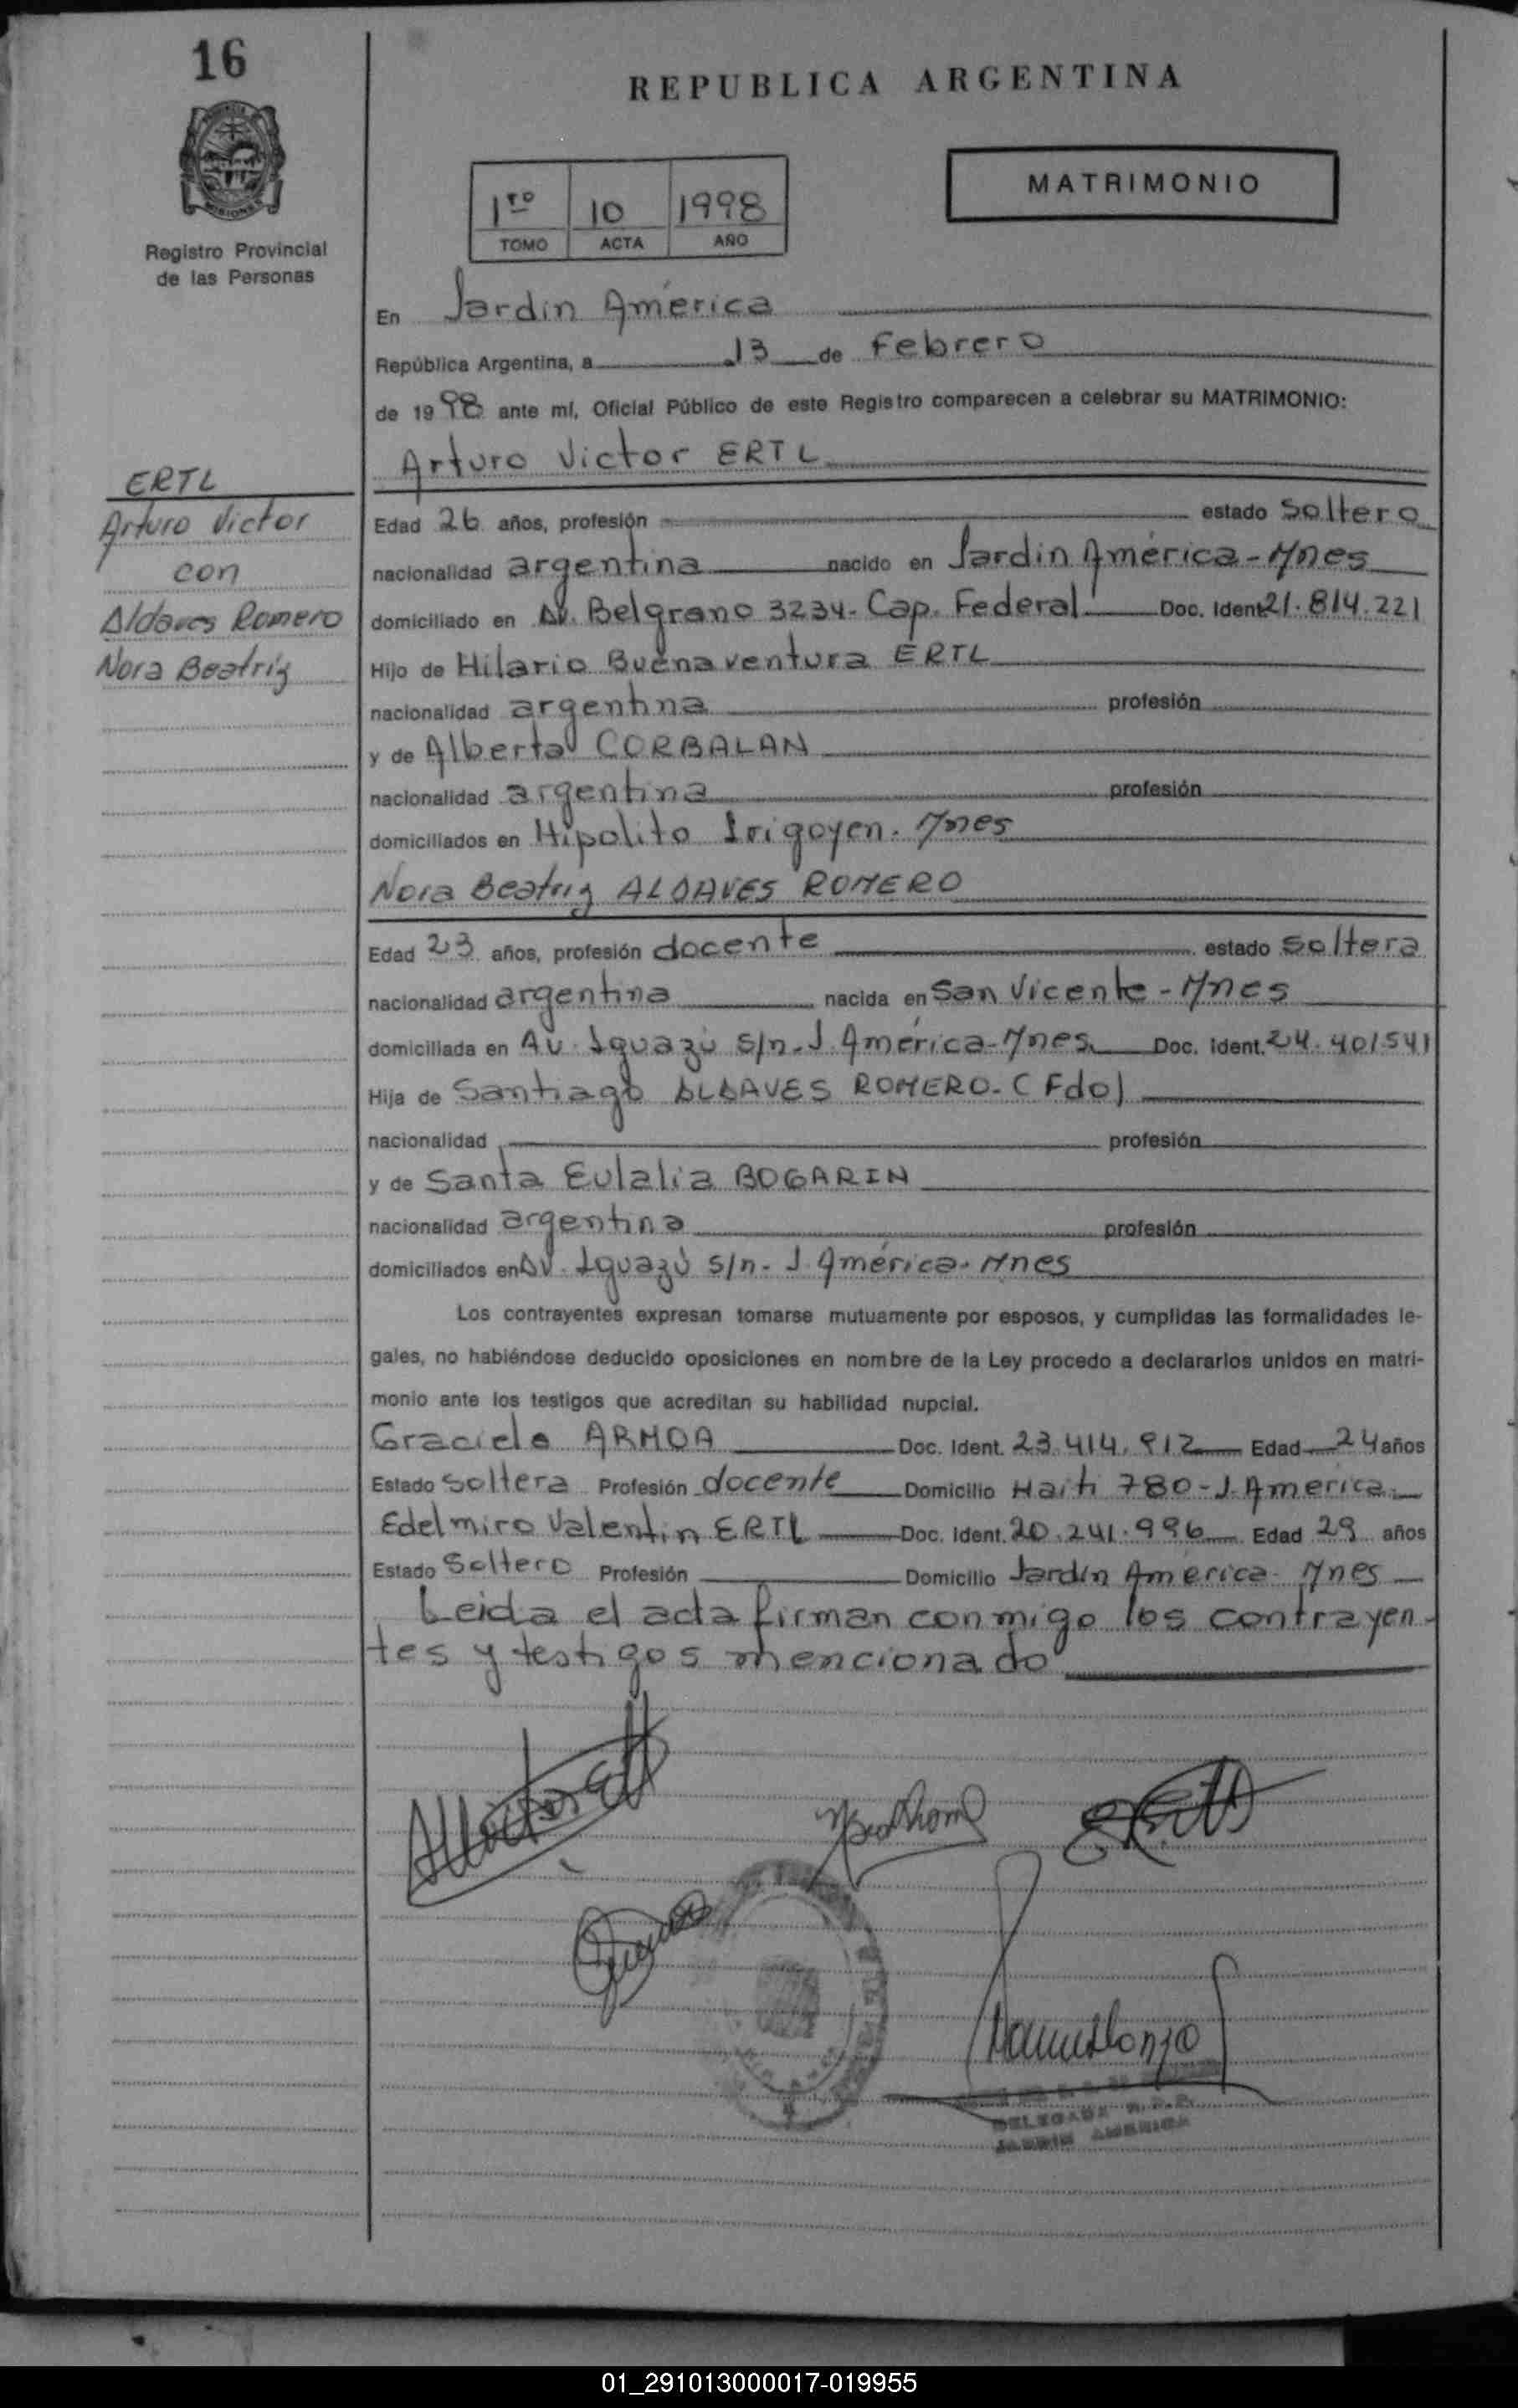 16
REPUBLICA ARGENTINA
MATRIMONIO
1ro 10 1998
TOMO ACTA AÑO
MISIONES
Registro Provincial
de las Personas
En Jardin América
República Argentina, a 13 de Febrero
de 1998 ante mí, Oficial Público de este Registro comparecen a celebrar su MATRIMONIO:
Arturo Victor ERTL
ERTL
Arturo Victor
con
Aldaves Romero
Nora Beatriz
Edad 26 años, profesión estado Soltero
nacionalidad argentina nacido en Jardin América-Mnes
domiciliado en Av. Belgrano 3234- Cap. Federal Doc. Ident 21.814.221
Hijo de Hilario Buenaventura ERTL
nacionalidad argentina profesión
y de Alberta CORBALAN
nacionalidad argentina profesión
domiciliados en Hipolito Irigoyen. Mnes
Nora Beatriz ALDAVES ROMERO
Edad 23 años, profesión docente estado Soltera
nacionalidad argentina nacida en San Vicente-Mnes
domiciliada en Av. Iguazú s/n-J. América-Mnes Doc. Ident. 24.401541
Hija de Santiago ALDAVES ROMERO-(Fdo)
nacionalidad profesión
y de Santa Eulalia BOGARIN
nacionalidad argentina profesión
domiciliados en Av. Iguazú s/n- J. América-Mnes
Los contrayentes expresan tomarse mutuamente por esposos, y cumplidas las formalidades le-
gales, no habiéndose deducido oposiciones en nombre de la Ley procedo a declararlos unidos en matri-
monio ante los testigos que acreditan su habilidad nupcial.
Graciela ARMOA Doc. Ident. 23.414.912 Edad 24 años
Estado Soltera Profesión docente Domicilio Haiti 780-J. America
Edelmiro Valentin ERTL Doc. Ident. 20.241.996 Edad 29 años
Estado Soltero Profesión Domicilio Jardin América- Mnes
Leida el acta firman conmigo los contrayen-
tes y testigos mencionado
DELEGADA R.P.P.
JARDIN AMERICA
01_291013000017-019955